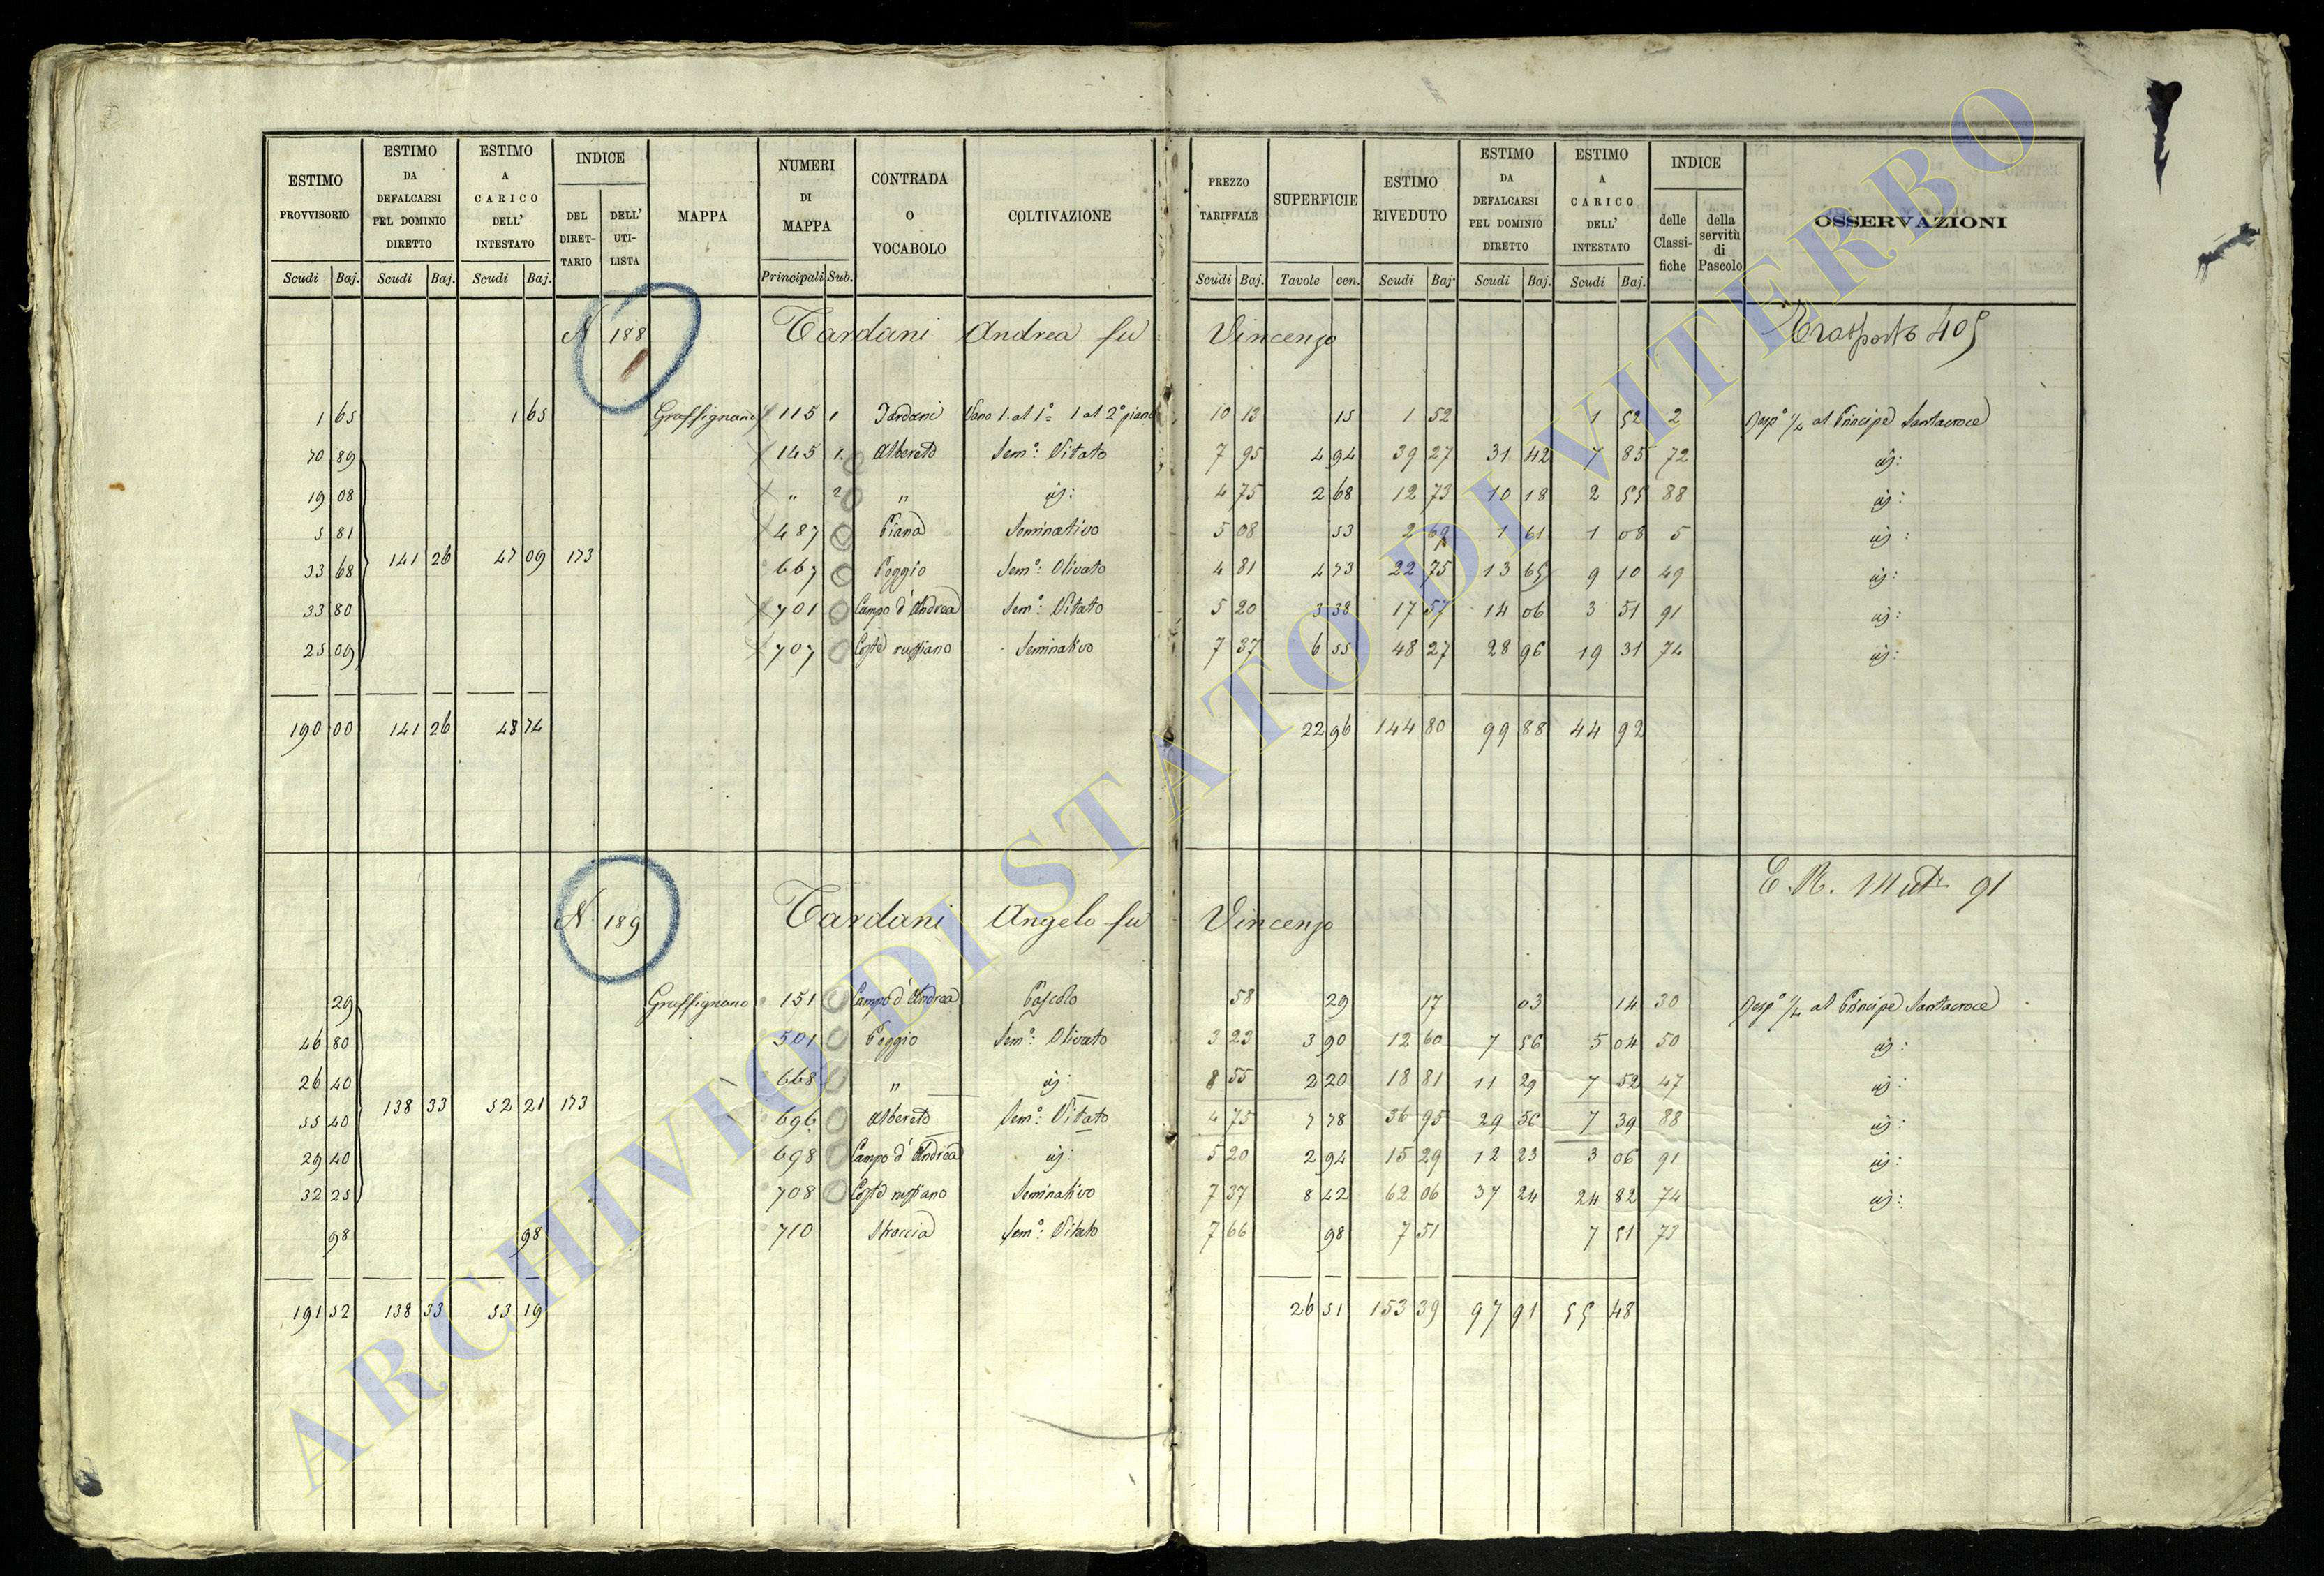 ESTIMO PROVVISORIO | ESTIMO DA DEFALCARSI PEL DOMINIO DIRETTO | ESTIMO A CARICO DELL' INTESTATO | INDICE | MAPPA | NUMERI DI MAPPA | CONTRADA O VOCABOLO | COLTIVAZIONE | PREZZO TARIFFALE | SUPERFICIE | ESTIMO RIVEDUTO | ESTIMO DA DEFALCARSI PEL DOMINIO DIRETTO | ESTIMO A CARICO DELL' INTESTATO | INDICE | OSSERVAZIONI
DEL DIRET-TARIO | DELL' UTI-LISTA | delle Classi-fiche | della servitù di Pascolo
Scudi | Baj. | Scudi | Baj. | Scudi | Baj. | Principali | Sub. | Scudi | Baj. | Tavole | cen. | Scudi | Baj. | Scudi | Baj. | Scudi | Baj.
N 188 Tardani Andrea fu Vincenzo Trasporto 405
1 65 | 1 65 | Graffignano | 115 1 | Tardani | Vano 1. al 1º 1 al 2º piano | 10 13 | 15 | 1 52 | 1 52 | 2 | Risp ¼ al Principe Santacroce
70 89 | 145 1. | Albereto | Sem: Vitato | 7 95 | 4 94 | 39 27 | 31 42 | 7 85 | 72 | id:
19 08 | " 2 | " | id: | 4 75 | 2 68 | 12 73 | 10 18 | 2 55 | 88 | id:
5 81 | 487 | Piana | Seminativo | 5 08 | 53 | 2 69 | 1 61 | 1 08 | 5 | id:
33 68 | 141 26 | 47 09 | 173 | 667 | Poggio | Sem: Olivato | 4 81 | 4 73 | 22 75 | 13 65 | 9 10 | 49 | id:
33 80 | 701 | Campo d'Andrea | Sem: Vitato | 5 20 | 3 38 | 17 57 | 14 06 | 3 51 | 91 | id:
25 09 | 707 | Coste ruffiano | Seminativo | 7 37 | 6 55 | 48 27 | 28 96 | 19 31 | 74 | id:
190 00 | 141 26 | 48 74 | 22 96 | 144 80 | 99 88 | 44 92
E. R. Mut 91
N 189 Tardani Angelo fu Vincenzo
29 | Graffignano | 151 | Campo d'Andrea | Pascolo | 58 | 29 | 17 | 03 | 14 | 30 | Risp ¼ al Principe Santacroce
46 80 | 501 | Poggio | Sem: Olivato | 3 23 | 3 90 | 12 60 | 7 56 | 5 04 | 50 | id:
26 40 | 668 | " | id: | 8 55 | 2 20 | 18 81 | 11 29 | 7 52 | 47 | id:
55 40 | 138 33 | 52 21 | 173 | 696 | Albereto | Sem: Vitato | 4 75 | 7 78 | 36 95 | 29 56 | 7 39 | 88 | id:
29 40 | 698 | Campo d'Andrea | id: | 5 20 | 2 94 | 15 29 | 12 23 | 3 06 | 91 | id:
32 25 | 708 | Coste ruffiano | Seminativo | 7 37 | 8 42 | 62 06 | 37 24 | 24 82 | 74 | id:
98 | 98 | 710 | Straccia | Sem: Vitato | 7 66 | 98 | 7 51 | 7 51 | 73
191 52 | 138 33 | 53 19 | 26 51 | 153 39 | 97 91 | 55 48
ARCHIVIO DI STATO DI VITERBO